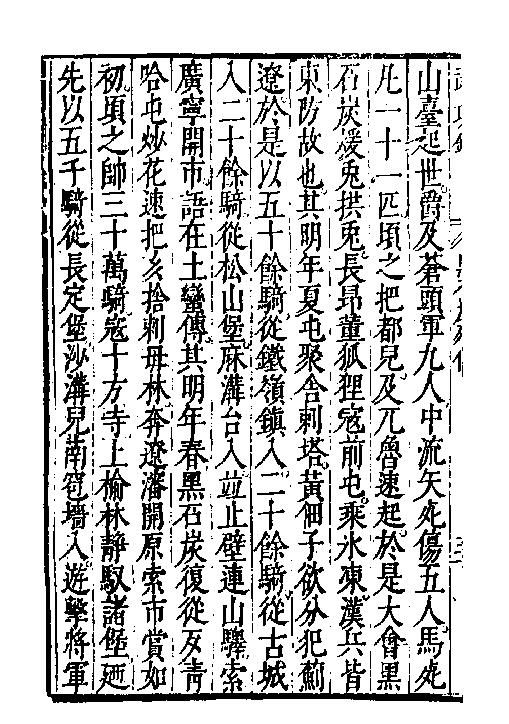 山臺起世爵及蒼頭軍九人中流矢死傷五人馬死
凡一十一匹頃之把都兒及兀魯速起於是大會黑
石炭煖兎拱兎長昂董狐狸宼前屯乘氷凍漢兵皆
東防故也其明年夏屯聚舎剌塔黃佃子欲分犯薊
遼於是以五十餘騎從鐵嶺鎮入二十餘騎從古城
入二十餘騎從松山堡麻溝台入並止壁連山驛索
廣寧開市語在土蠻傳其明年春黑石炭復從歹青
哈屯炒花速把亥捨剌毋林奔遼瀋開原索市賞如
初頃之帥三十萬騎宼十方寺上榆林靜馭諸堡廼
先以五千騎從長定堡沙溝兒南窞墻入遊擊將軍